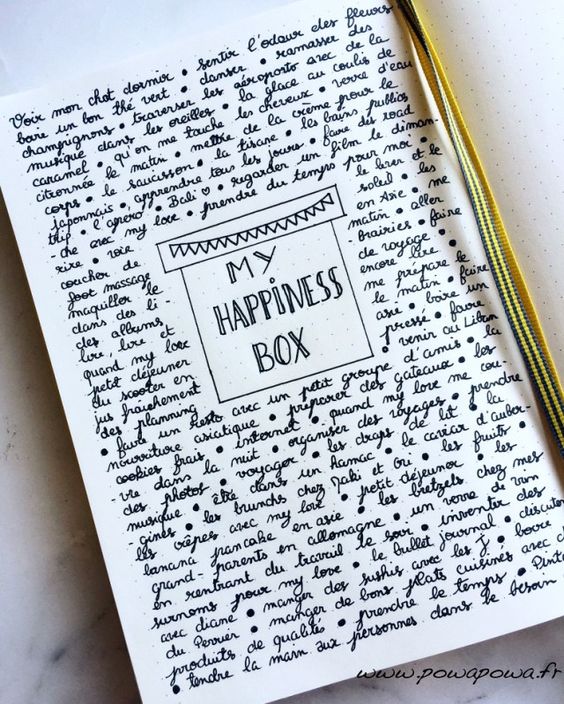 Voir mon chat dormir • sentir l'odeur des fleurs •
boire un bon thé vert • danser • ramasser des
champignons • traverser les aéroports avec de la
musique dans les oreilles • la glace au coulis de
caramel • qu'on me touche les cheveux • verre d'eau
citronnée le matin • mettre de la crème pour le
corps • le saucisson • la tisane • les bains publics
japonnais • apprendre tous les jours • faire des road
trip • l'apéro • Bali ♡ • regarder un film le diman-
-che avec my love • prendre du temps pour moi •
rire • voir le lever et le
coucher de soleil • les
foot massage en Asie • me
maquiller le matin • aller
dans des li- brairies • faire
des albums de voyage •
lire, lire et encore lire •
quand my love me prépare le
petit déjeuner le matin • faire
du scooter en asie • boire un
jus fraichement pressé • faire
des planning • venir au Liban
• faire un resto avec un petit groupe d'amis • la
nourriture asiatique • préparer des gateaux • les
cookies frais • internet • quand my love me cou-
-vre dans la nuit • organiser des voyages • prendre
des photos • voyager • les draps de lit • la
musique • être dans un hamac • le caviar d'auber-
-gines • les brunchs chez Jaki et Ori • les fruits •
les crêpes avec my love • petit déjeuner • les
banana pancake en asie • les bretzels chez mes
grand-parents en allemagne • un verre de vin
en rentrant du travail le soir • inventer des
surnoms pour my love • le bullet journal • discuter
avec diane • manger des sushis avec les J • boire
du Perrier • manger de bons plats cuisinés avec d
produits de qualités • prendre le temps • Pint
• tendre la main aux personnes dans le besoin
MY
HAPPINESS
BOX
www.powapowa.fr